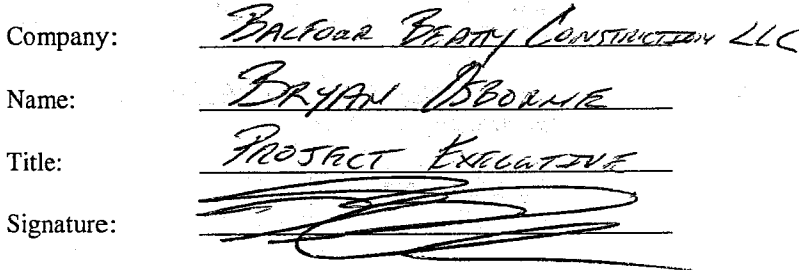 Company: BALFOUR BEATTY CONSTRUCTION LLC
Name: BRYAN OSBORNE
Title: PROJECT EXECUTIVE
Signature: